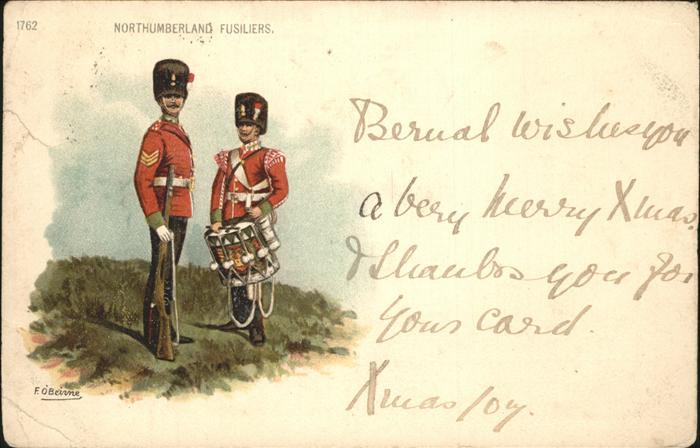 1762
NORTHUMBERLAND FUSILIERS.
Bernal wishes you
a very Merry Xmas,
& thanks you for
your card.
Xmas /04.
F. O'Beirne